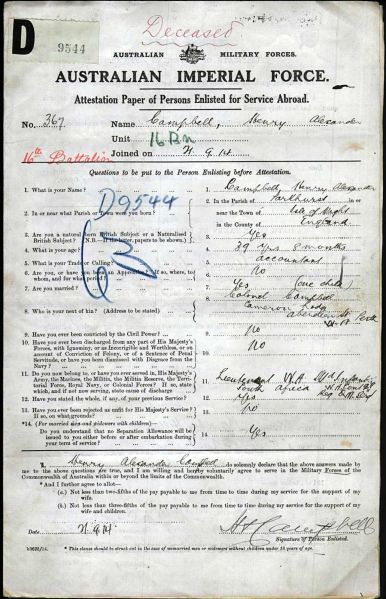 Deceased
D
9544
AUSTRALIAN MILITARY FORCES.
AUSTRALIAN IMPERIAL FORCE.
Attestation Paper of Persons Enlisted for Service Abroad.
No. 367 Name Campbell, Henry Alexander
Unit 16 Bn
16th Battalion Joined on 11.9.14
Questions to be put to the Person Enlisting before Attestation.
1. What is your Name? 1. Campbell, Henry Alexander
D9544
2. In or near what Parish or Town were you born? 2. In the Parish of Parkhurst in or
near the Town of Isle of Wight
in the County of England
3. Are you a natural born British Subject or a Naturalised
British Subject? (N.B.—If the latter, papers to be shown) 3. Yes
4. What is your age? 4. 39 yrs 8 months
5. What is your Trade or Calling? 5. accountant
6. Are you, or have you been an Apprentice? If so, where, to
whom, and for what period? 6. no
7. Are you married? 7. Yes (one child)
8. Who is your next of kin? 8. Colonel Campbell
Cameron Lodge
Aberdeen St Perth
W.A.
9. Have you ever been convicted by the Civil Power? 9. no
10. Have you ever been discharged from any part of His Majesty's
Forces, with Ignominy, or as Incorrigible and Worthless, or on
account of Conviction of Felony, or of a Sentence of Penal
Servitude, or have you been dismissed with Disgrace from the
Navy? 10. no
11. Do you now belong to, or have you ever served in, His Majesty's
Army, the Marines, the Militia, the Militia Reserve, the Terri-
torial Force, Royal Navy, or Colonial Forces? If so, state
which, and if not now serving, state cause of discharge 11. Lieutenant W.A.
South Africa
12. Have you stated the whole, if any, of your previous Service? 12. Yes
13. Have you ever been rejected as unfit for His Majesty's Service?
If so, on what grounds? 13. no
*14. (For married men and widowers with children)—
Do you understand that no Separation Allowance will be
issued to you either before or after embarkation during your
term of service? 14. Yes
I, Henry Alexander Campbell do solemnly declare that the above answers made by
me to the above questions are true, and I am willing and hereby voluntarily agree to serve in the Military Forces of the
Commonwealth of Australia within or beyond the limits of the Commonwealth.
* And I further agree to allot—
(a.) Not less than two-fifths of the pay payable to me from time to time during my service for the support of my
wife.
(b.) Not less than three-fifths of the pay payable to me from time to time during my service for the support of my
wife and children.
Date 11.9.14 H A Campbell
Signature of Person Enlisted.
* This clause should be struck out in the case of unmarried men or widowers without children under 18 years of age.